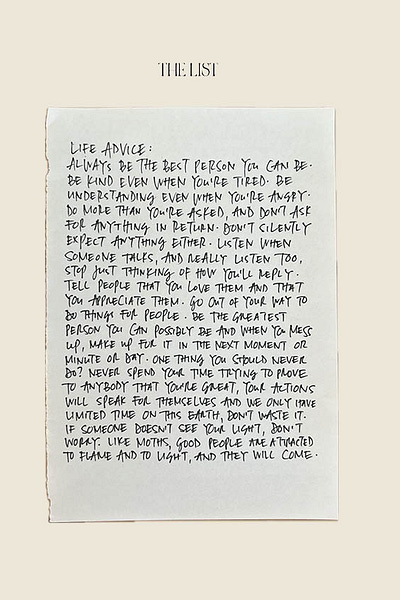 THE LIST
LIFE ADVICE:
ALWAYS BE THE BEST PERSON YOU CAN BE.
BE KIND EVEN WHEN YOU'RE TIRED. BE
UNDERSTANDING EVEN WHEN YOU'RE ANGRY.
DO MORE THAN YOU'RE ASKED, AND DON'T ASK
FOR ANYTHING IN RETURN. DON'T SILENTLY
EXPECT ANYTHING EITHER. LISTEN WHEN
SOMEONE TALKS, AND REALLY LISTEN TOO,
STOP JUST THINKING OF HOW YOU'LL REPLY.
TELL PEOPLE THAT YOU LOVE THEM AND THAT
YOU APPRECIATE THEM. GO OUT OF YOUR WAY TO
DO THINGS FOR PEOPLE. BE THE GREATEST
PERSON YOU CAN POSSIBLY BE AND WHEN YOU MESS
UP, MAKE UP FOR IT IN THE NEXT MOMENT OR
MINUTE OR DAY. ONE THING YOU SHOULD NEVER
DO? NEVER SPEND YOUR TIME TRYING TO PROVE
TO ANYBODY THAT YOU'RE GREAT, YOUR ACTIONS
WILL SPEAK FOR THEMSELVES AND WE ONLY HAVE
LIMITED TIME ON THIS EARTH, DON'T WASTE IT.
IF SOMEONE DOESN'T SEE YOUR LIGHT, DON'T
WORRY. LIKE MOTHS, GOOD PEOPLE ARE ATTRACTED
TO FLAME AND TO LIGHT, AND THEY WILL COME.